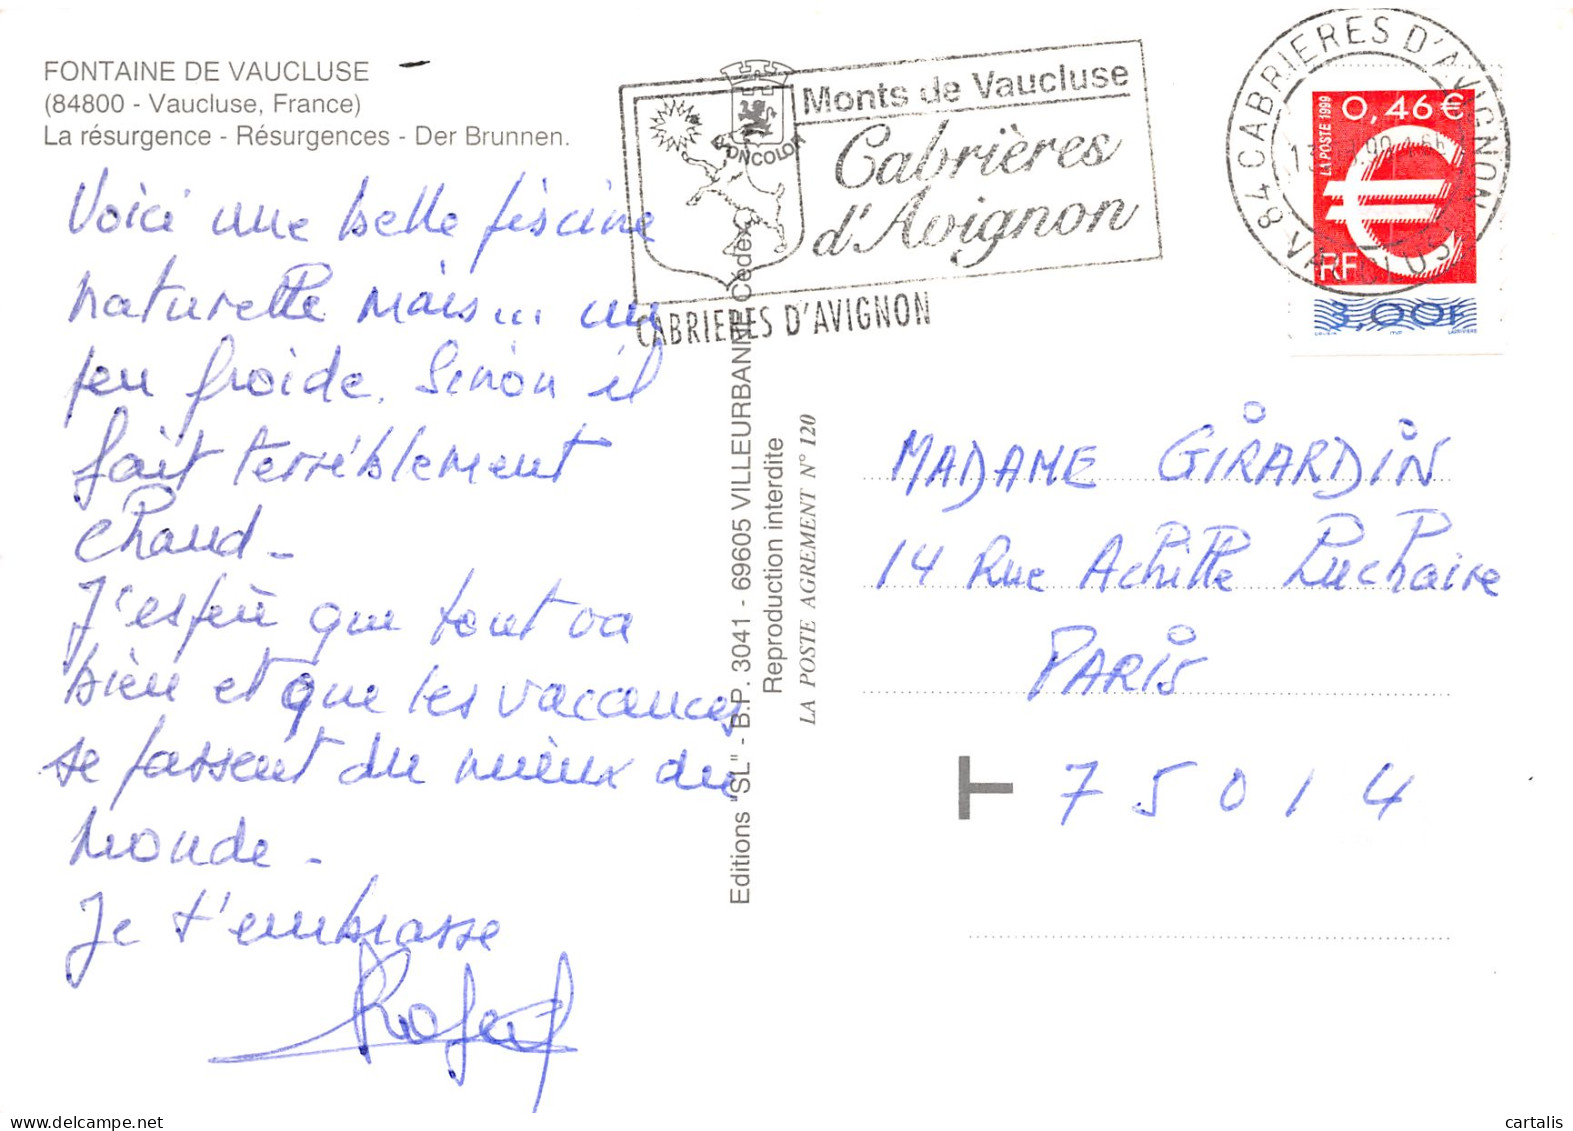 FONTAINE DE VAUCLUSE
(84800 - Vaucluse, France)
La résurgence - Résurgences - Der Brunnen.
Voici une belle piscine
naturelle mais... un
peu froide. Sinon il
fait terriblement
chaud -
J'espère que tout va
bien et que les vacances
se passent du mieux du
monde -
Je t'embrasse
Monts de Vaucluse
Cabrières
d'Avignon
CABRIERES D'AVIGNON
84 CABRIERES D'AVIGNON
VAUCLUSE
LA POSTE 1999
0,46 €
RF
3,00F
Editions "SL" - B.P. 3041 - 69605 VILLEURBANNE Cedex
Reproduction interdite
LA POSTE AGREMENT N° 120
MADAME GIRARDIN
14 Rue Achille Luchaire
PARIS
75014
cartalis